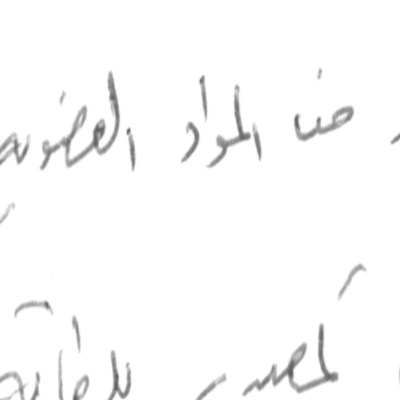 هنا المواد العضوية
كمصدر للطاقة